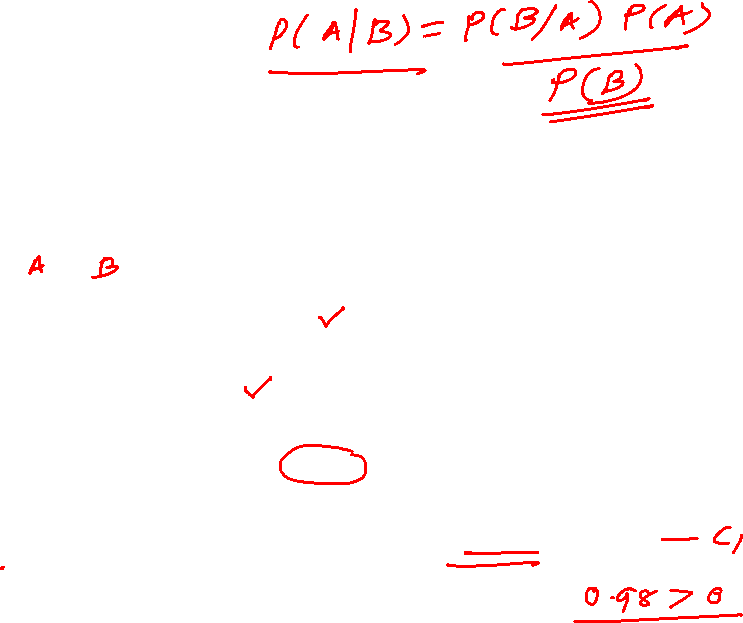 P(A|B) = P(B/A) P(A)
P(B)
A B
— C,
0.98 > 0